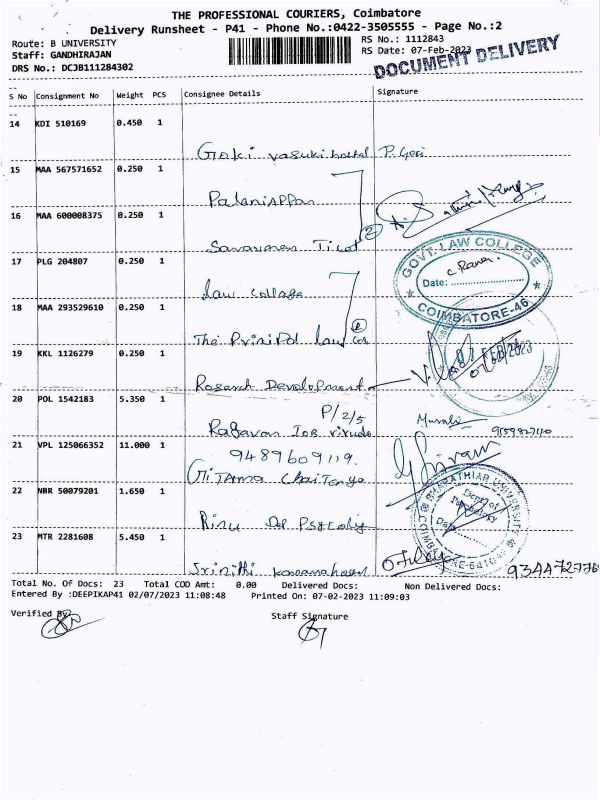 THE PROFESSIONAL COURIERS, Coimbatore
Delivery Runsheet - P41 - Phone No.:0422-3505555 - Page No.:2
Route: B UNIVERSITY
RS No.: 1112843
Staff: GANDHIRAJAN
RS Date: 07-Feb-2023
DRS No.: DCJB111284302
DOCUMENT DELIVERY
S No Consignment No Weight PCS Consignee Details Signature
14 KDI 510169 0.450 1
Goki vasuki hostel P. Gori
15 MAA 567571652 0.250 1
Palaniappan
16 MAA 600008375 0.250 1
Saravanan
17 PLG 204807 0.250 1
GOVT. LAW COLLEGE
Date:
COIMBATORE-46
Law Collage
18 MAA 293529610 0.250 1
The law
19 KKL 1126279 0.250 1
07 FEB 2023
Research Development
20 POL 1542183 5.350 1
P/2/5
Ragavan
Murali
9159827110
21 VPL 125066352 11.000 1
9489609119
22 NBR 50079201 1.650 1
BHARATHIAR UNIVERSITY
Dept of
Psychology
Date
23 MTR 2281608 5.450 1
Srinithi
Total No. Of Docs: 23 Total COD Amt: 0.00 Delivered Docs: Non Delivered Docs:
Entered By :DEEPIKAP41 02/07/2023 11:08:48 Printed On: 07-02-2023 11:09:03
Verified By
Staff Signature